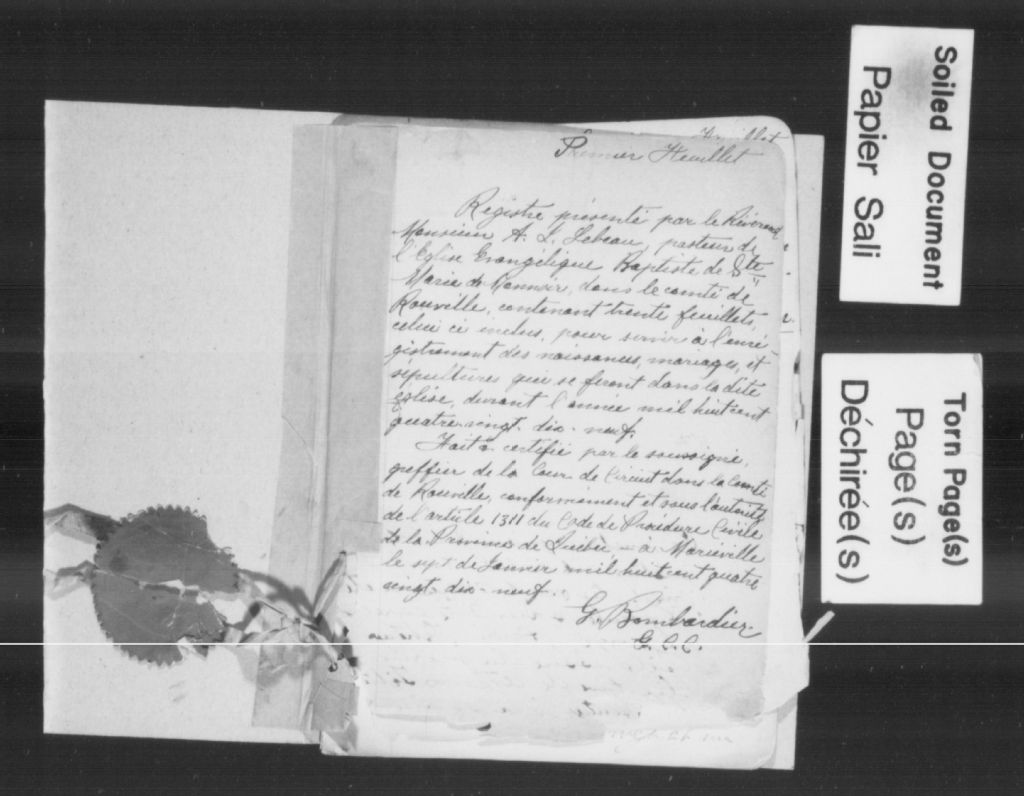 Premier Feuillet
Registre présenté par le Révérend
Monsieur A. L. Lebeau, pasteur de
l'Eglise Evangélique Baptiste de Ste
Marie de Monnoir, dans le comté de
Rouville, contenant trente feuillets,
celui ci inclus, pour servir à l'enré-
gistrement des naissances, mariages, et
sépultures qui se feront dans la dite
église, durant l'année mil huit cent
quatre-vingt-dix-neuf.
Fait & certifié par le soussigné,
greffier de la Cour de Circuit dans le Comté
de Rouville, conformément et sous l'autorité
de l'article 1311 du Code de Procédure Civile
de la Province de Québec - à Marieville
le sept de Janvier mil huit cent quatre
vingt-dix-neuf.
G. Bombardier
G. C. C.
Soiled Document
Papier Sali
Torn Page(s)
Page(s)
Déchirée(s)